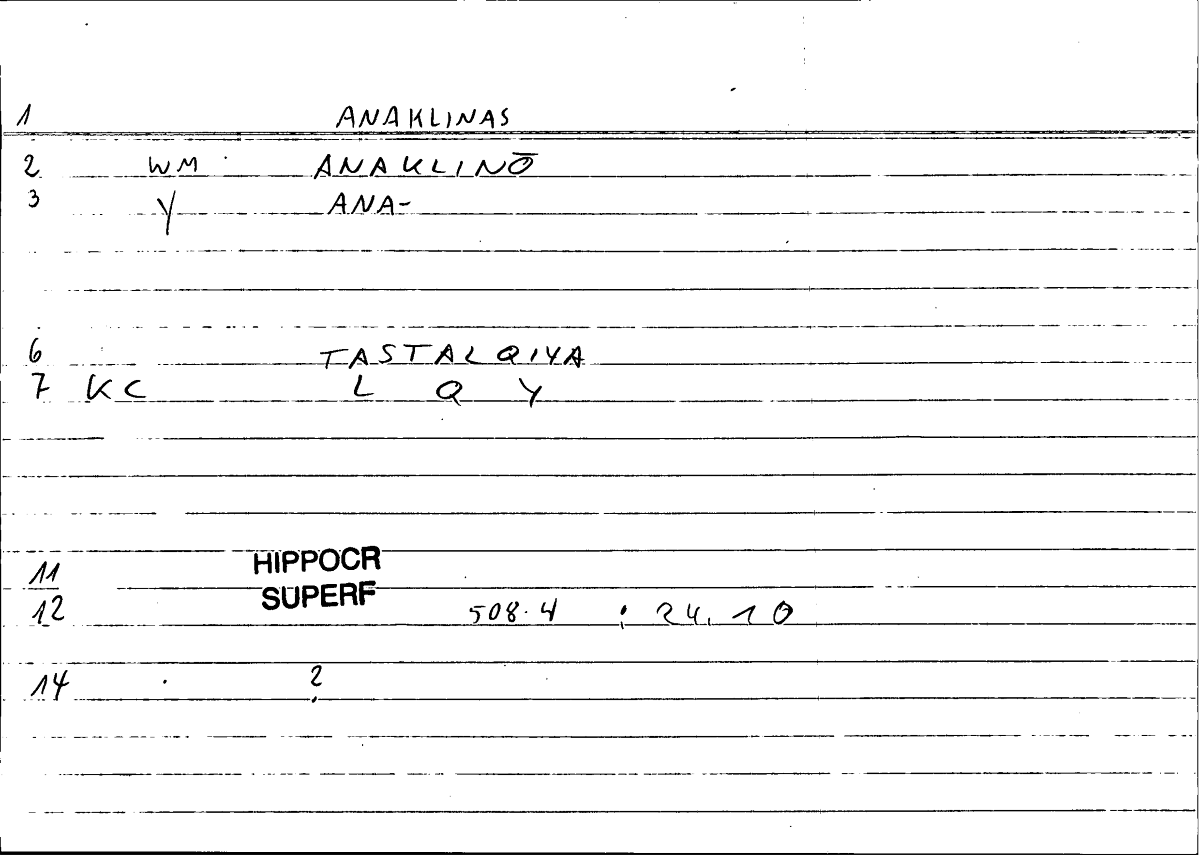 1 ANAKLINAS
2 WM ANAKLINŌ
3 Y ANA-
6 TASTALQIYA
7 KC L Q Y
11 HIPPOCR
12 SUPERF 508.4 ; 24,10
14 ?